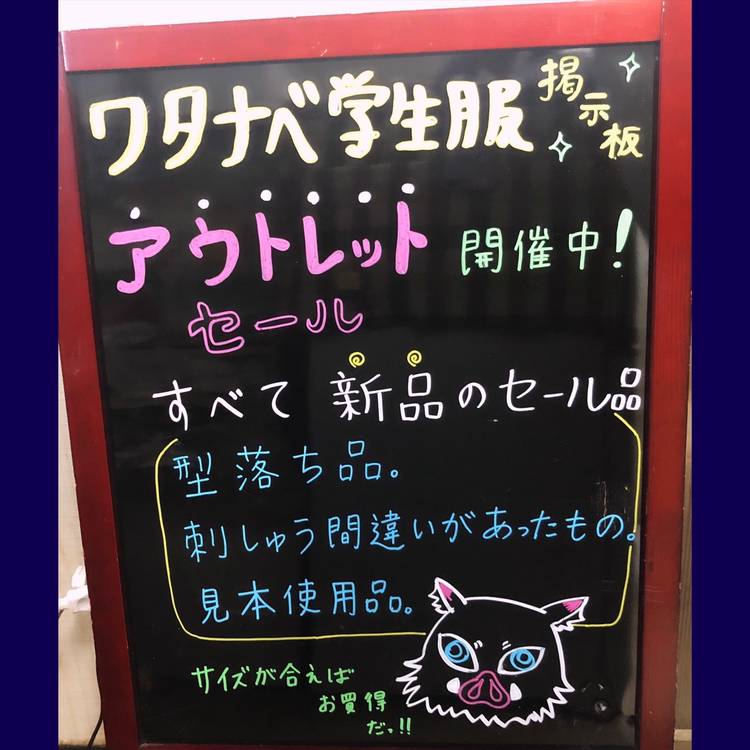 ワタナベ学生服 掲示板
アウトレット 開催中!
セール
すべて 新品のセール品
型落ち品。
刺しゅう間違いがあったもの。
見本使用品。
サイズが合えば
お買得
だっ!!